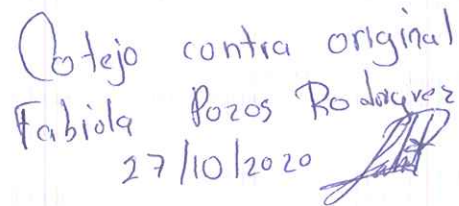 Cotejo contra original
Fabiola Pozos Rodriguez
27/10/2020